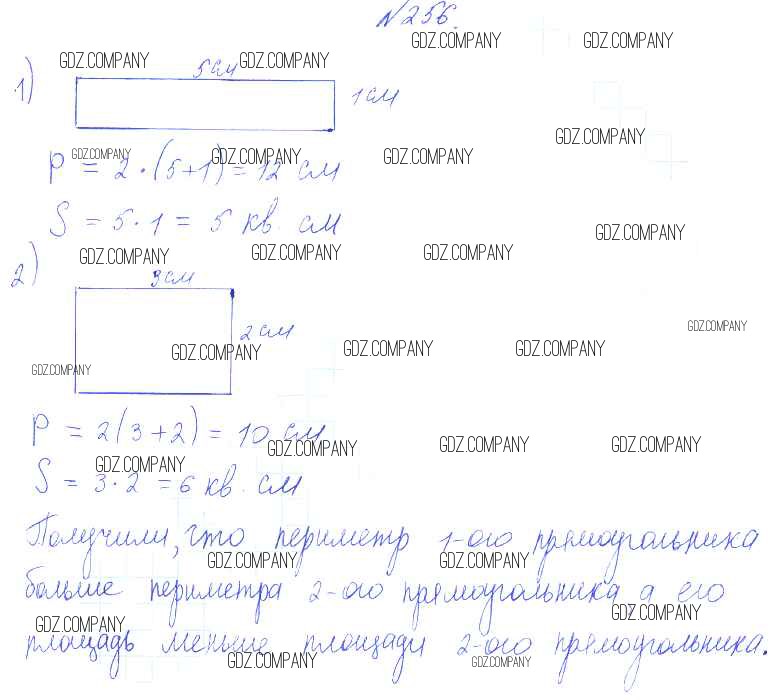 №256.
GDZ.COMPANY GDZ.COMPANY GDZ.COMPANY GDZ.COMPANY
5 см
1) 1 см
GDZ.COMPANY
GDZ.COMPANY GDZ.COMPANY GDZ.COMPANY
P = 2·(5+1) = 12 см
S = 5·1 = 5 кв. см
GDZ.COMPANY
GDZ.COMPANY GDZ.COMPANY GDZ.COMPANY
2) 3 см
2 см
GDZ.COMPANY
GDZ.COMPANY GDZ.COMPANY GDZ.COMPANY
GDZ.COMPANY
P = 2(3+2) = 10 см
GDZ.COMPANY GDZ.COMPANY GDZ.COMPANY
GDZ.COMPANY
S = 3·2 = 6 кв. см
Получили, что периметр 1-ого прямоугольника
GDZ.COMPANY GDZ.COMPANY
больше периметра 2-ого прямоугольника а его
GDZ.COMPANY GDZ.COMPANY
площадь меньше площади 2-ого прямоугольника.
GDZ.COMPANY GDZ.COMPANY